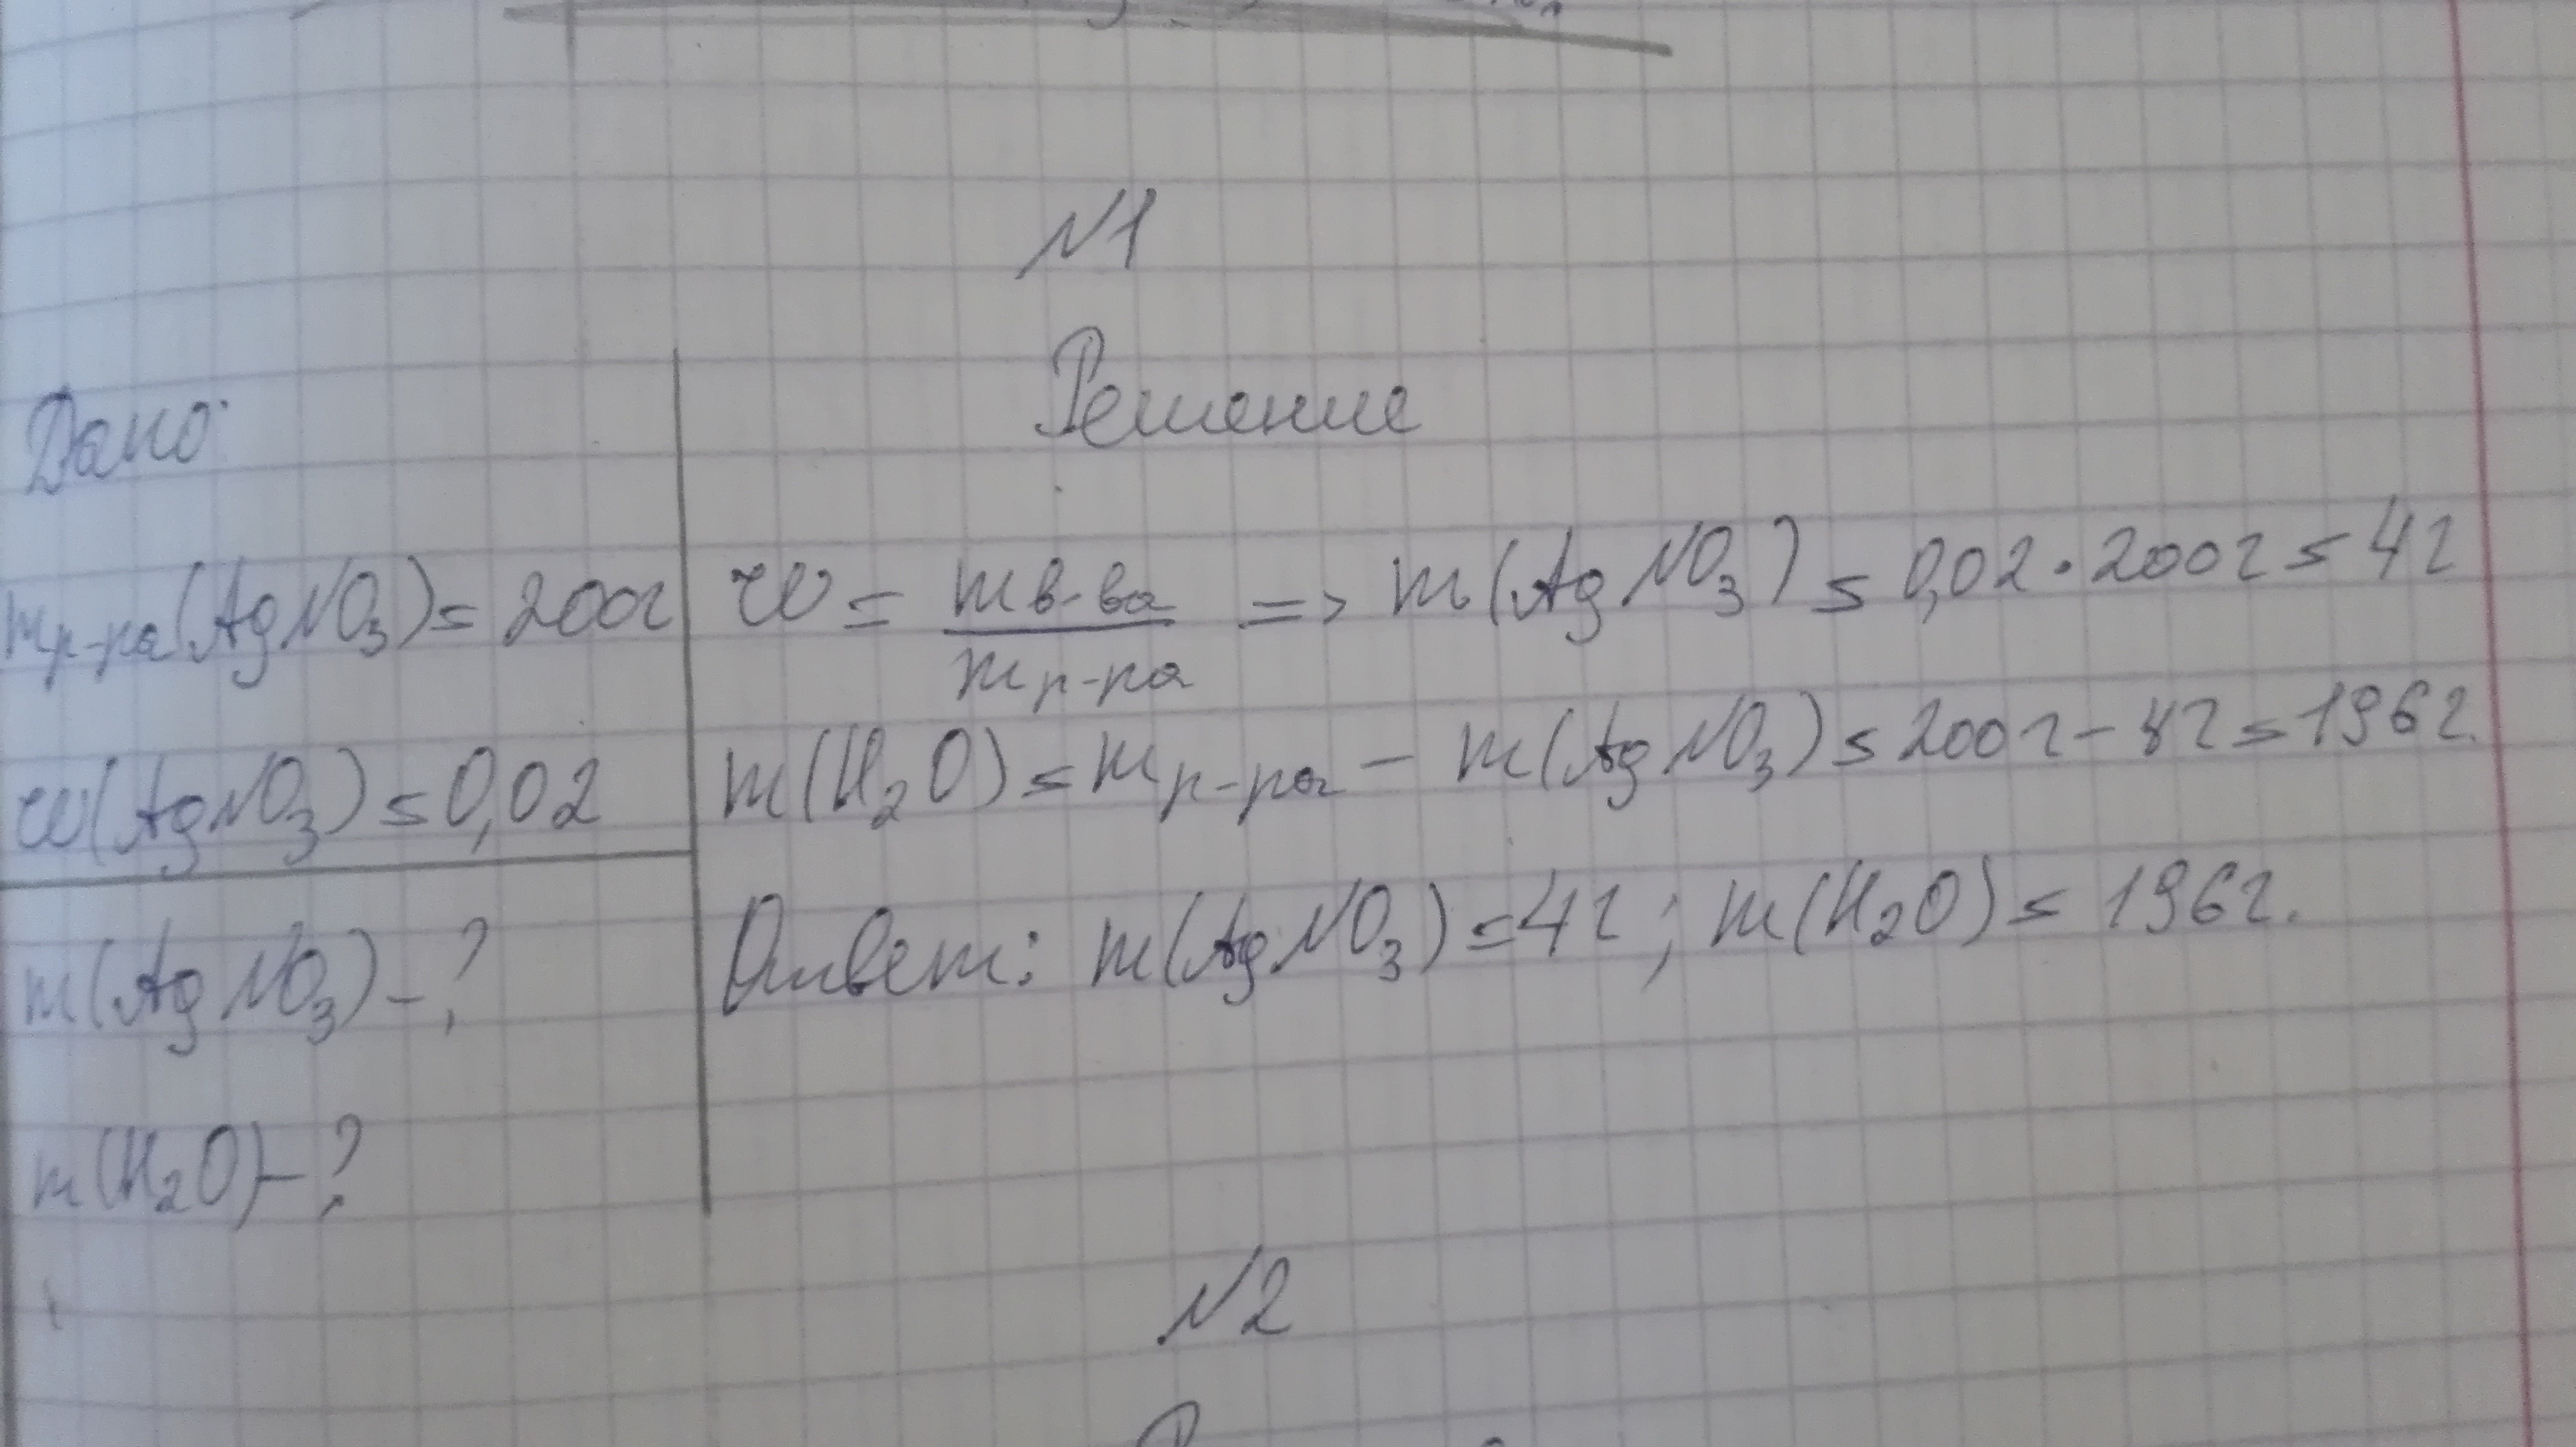 №1
Решение
Дано:
mр-ра(AgNO₃) = 200г
w(AgNO₃) = 0,02
m(AgNO₃) - ?
m(H₂O) - ?
w = mв-ва / mр-ра => m(AgNO₃) = 0,02 · 200г = 4г
m(H₂O) = mр-ра - m(AgNO₃) = 200г - 4г = 196г.
Ответ: m(AgNO₃) = 4г ; m(H₂O) = 196г.
№2